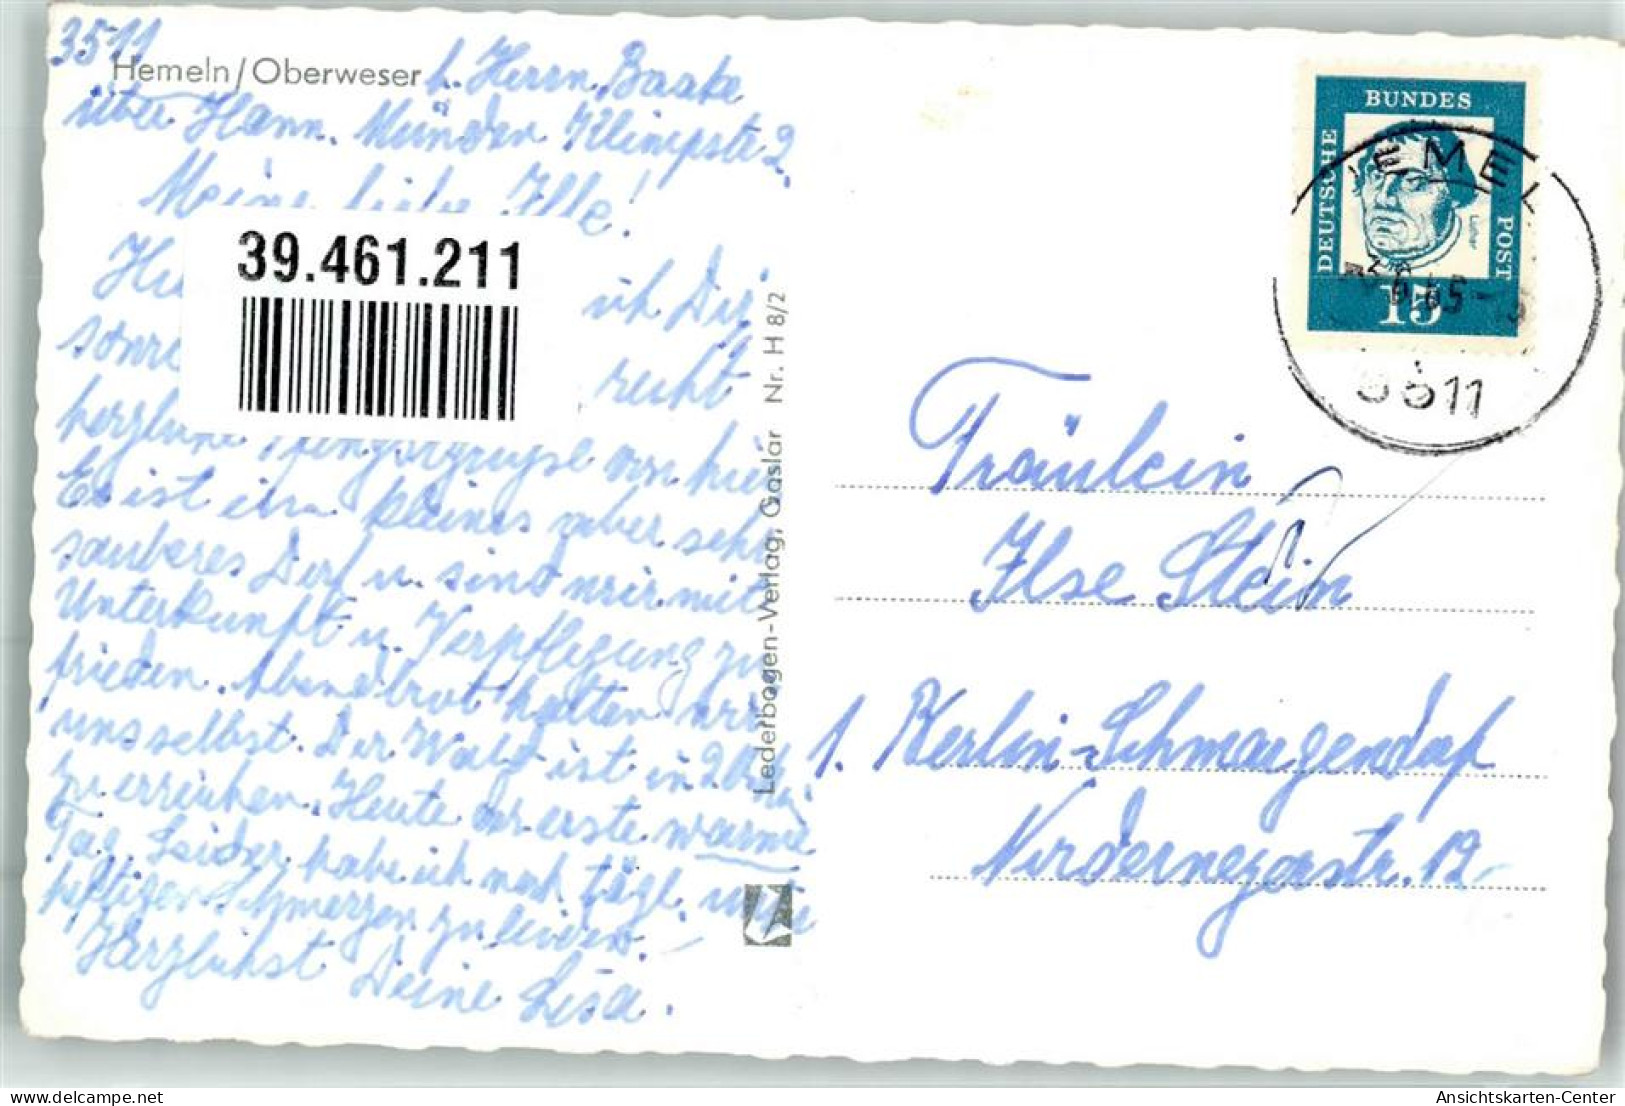 3511
Hemeln/Oberweser b. Herrn Baake
über Hann. Münden Klimpstr 2.
Meine liebe Ilse!
39.461.211
ich Dir
recht
herzliche Pfingstgrüße von hier
Es ist ein kleines aber sehr
sauberes Dorf u. sind wir mit
Unterkunft u. Verpflegung zu
frieden. Abendbrot halten wir
uns selbst. Der Wald ist in 20 Min
zu erreichen. Heute der erste warme
Tag. Leider habe ich noch tägl. unter
heftigen Schmerzen zu leiden. -
Herzlichst Deine Lisa.
Lederbogen-Verlag, Goslar Nr. H 8/2
DEUTSCHE
BUNDES
POST
Luther
15
HEMELN
3511
Fräulein
Ilse Stein
1. Berlin-Schmargendorf
Nordernegerstr. 19
www.ak-ansichtskarten.de
Ansichtskarten-Center